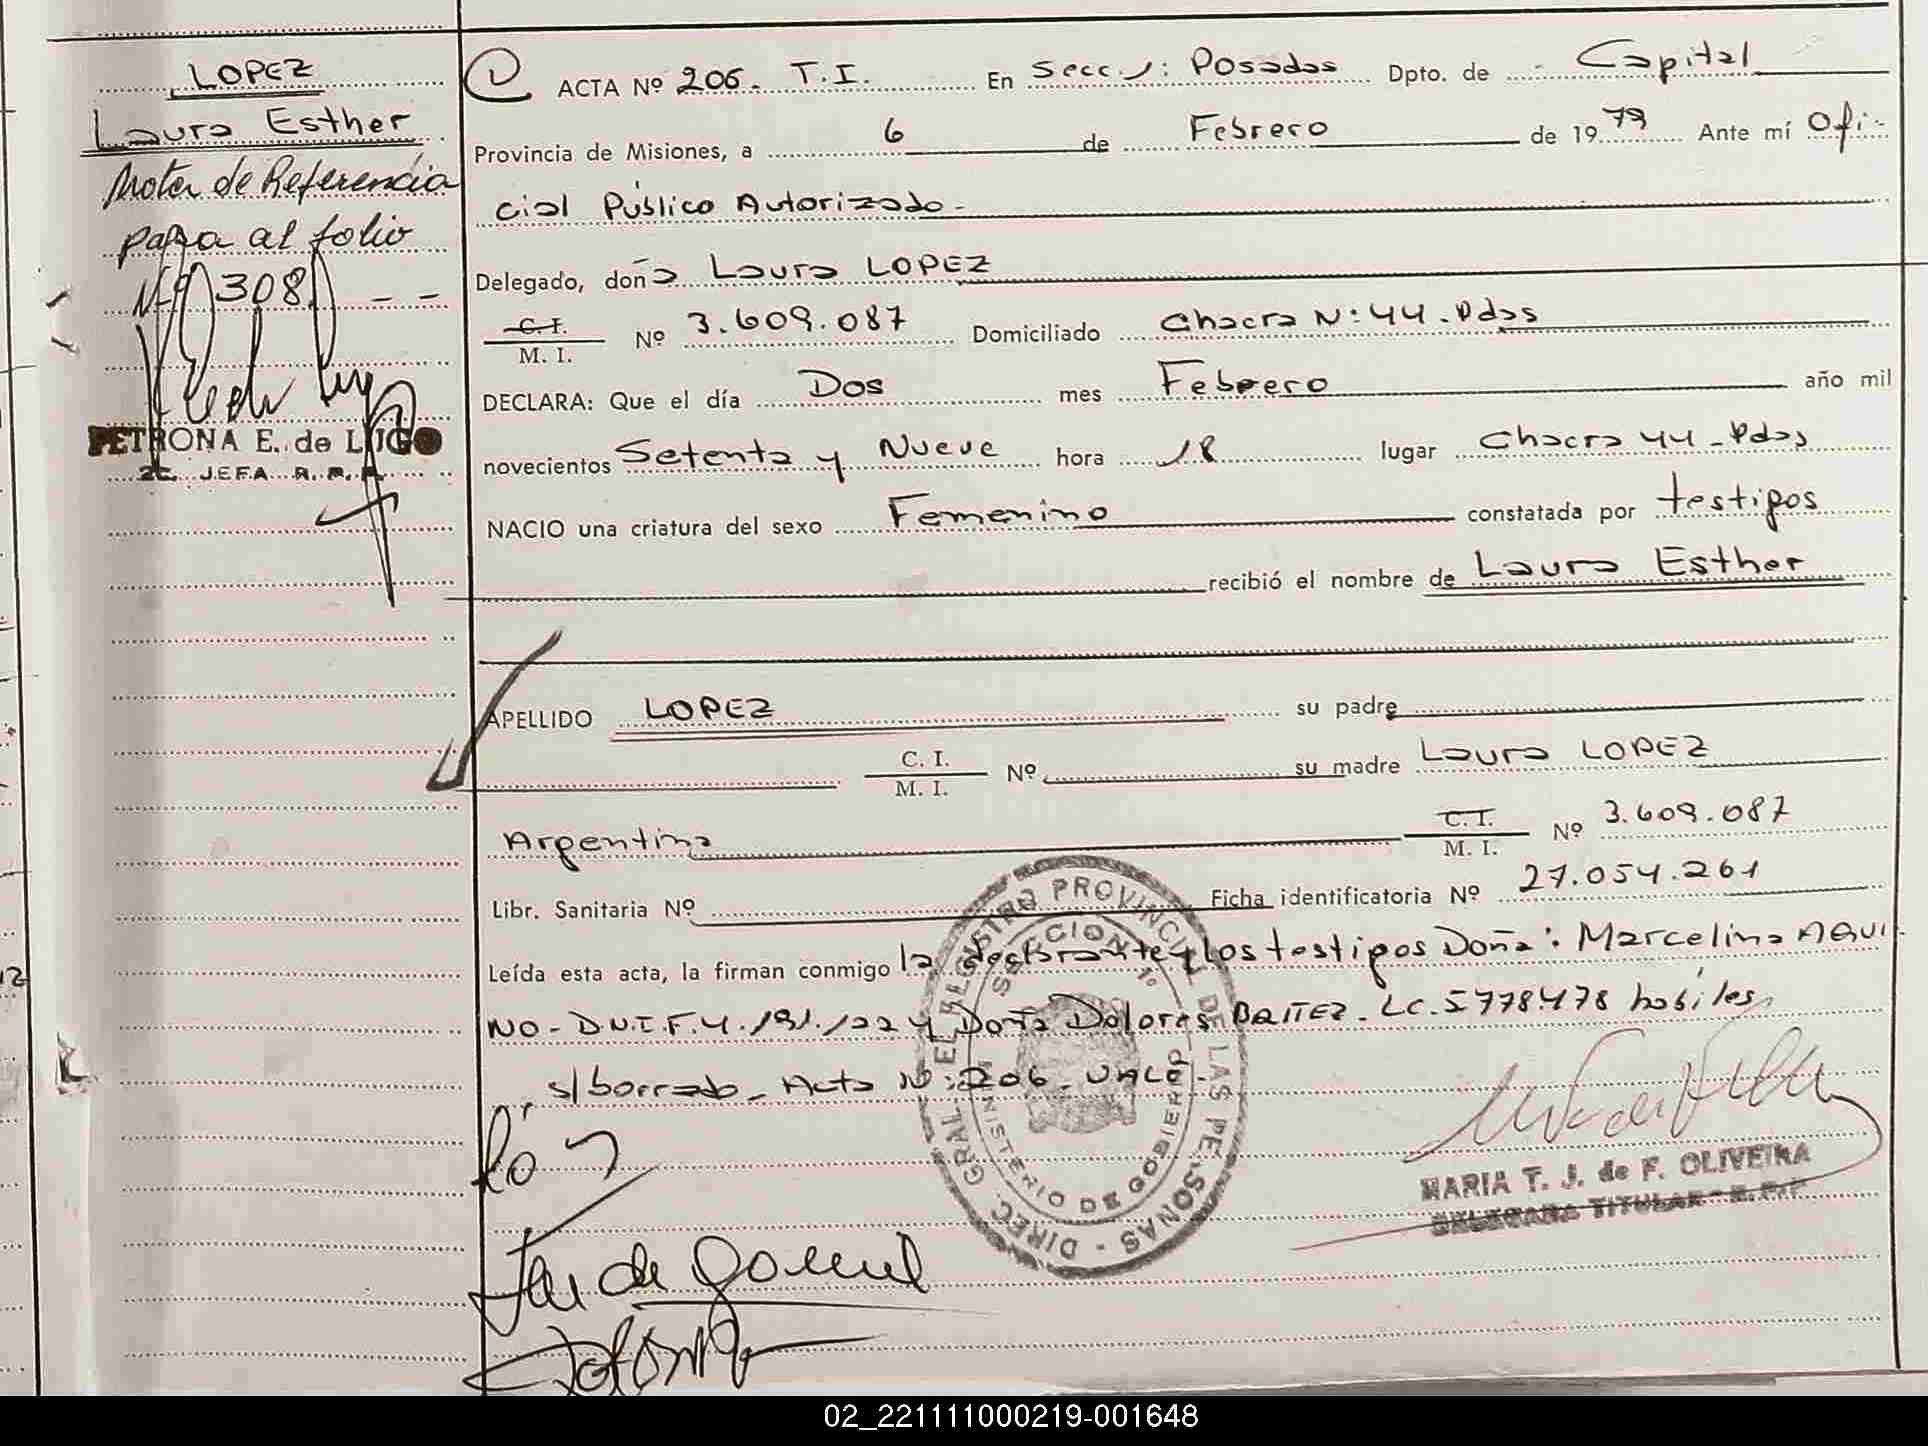 LOPEZ
Laura Esther
Nota de Referencia
para al folio
Nº 308 - -
PETRONA E. de LUGO
2ª JEFA R. P.
ACTA Nº 206. T.I. En Secc. 1: Posadas Dpto. de Capital
Provincia de Misiones, a 6 de Febrero de 1979 Ante mí Ofi-
cial Público Autorizado-
Delegado, doña Laura LOPEZ
C. I. / M. I. Nº 3.609.087 Domiciliado Chacra N: 44 - Pdas
DECLARA: Que el día Dos mes Febrero año mil
novecientos Setenta y Nueve hora 18 lugar Chacra 44 - Pdas
NACIO una criatura del sexo Femenino constatada por testigos
recibió el nombre de Laura Esther
APELLIDO LOPEZ su padre
C. I. / M. I. Nº su madre Laura LOPEZ
Argentina C. I. / M. I. Nº 3.609.087
Libr. Sanitaria Nº Ficha identificatoria Nº 27.054.261
Leída esta acta, la firman conmigo la declarante y los testigos Doña: Marcelina AQUI
NO - D.N.I.F. 4.191.122 y Doña Dolores BRITEZ. LC. 5778.478 hábiles
s/borrado - Acta N: 206 - VALE -
DIREC. GRAL. EL REGISTRO PROVINCIAL DE LAS PERSONAS
SECCION 1º
MINISTERIO DE GOBIERNO
MARIA T. J. de F. OLIVEIRA
DELEGADA TITULAR - R.P.P.
02_221111000219-001648